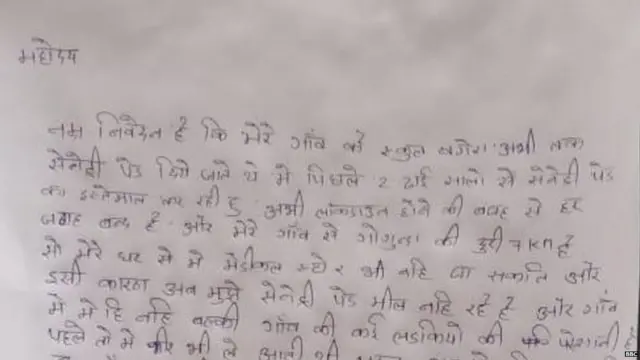 महोदय
नम्र निवेदन है कि मेरे गाँव के स्कुल वगेरा अभी तक
सेनेट्री पेड दिये जाते थे मे पिछले 2 ढाई सालो से सेनेट्री पेड
का इस्तेमाल कर रही हु अभी लॉकडाउन होने की वजह से हर
जगह बन्द है. और मेरे गाँव से गोगुन्दा की दुरी 7 km है
तो मेरे घर से मे मेडीकल स्टोर भी नहि जा सकति और
इसी कारण अब मुझे सेनेट्री पेड मील नहि रहे है और गाँव
मे मे हि नहि बल्की गाँव की कई लडकियो की परेशानी है
पहले तो मे भी ले आती थी
BBC